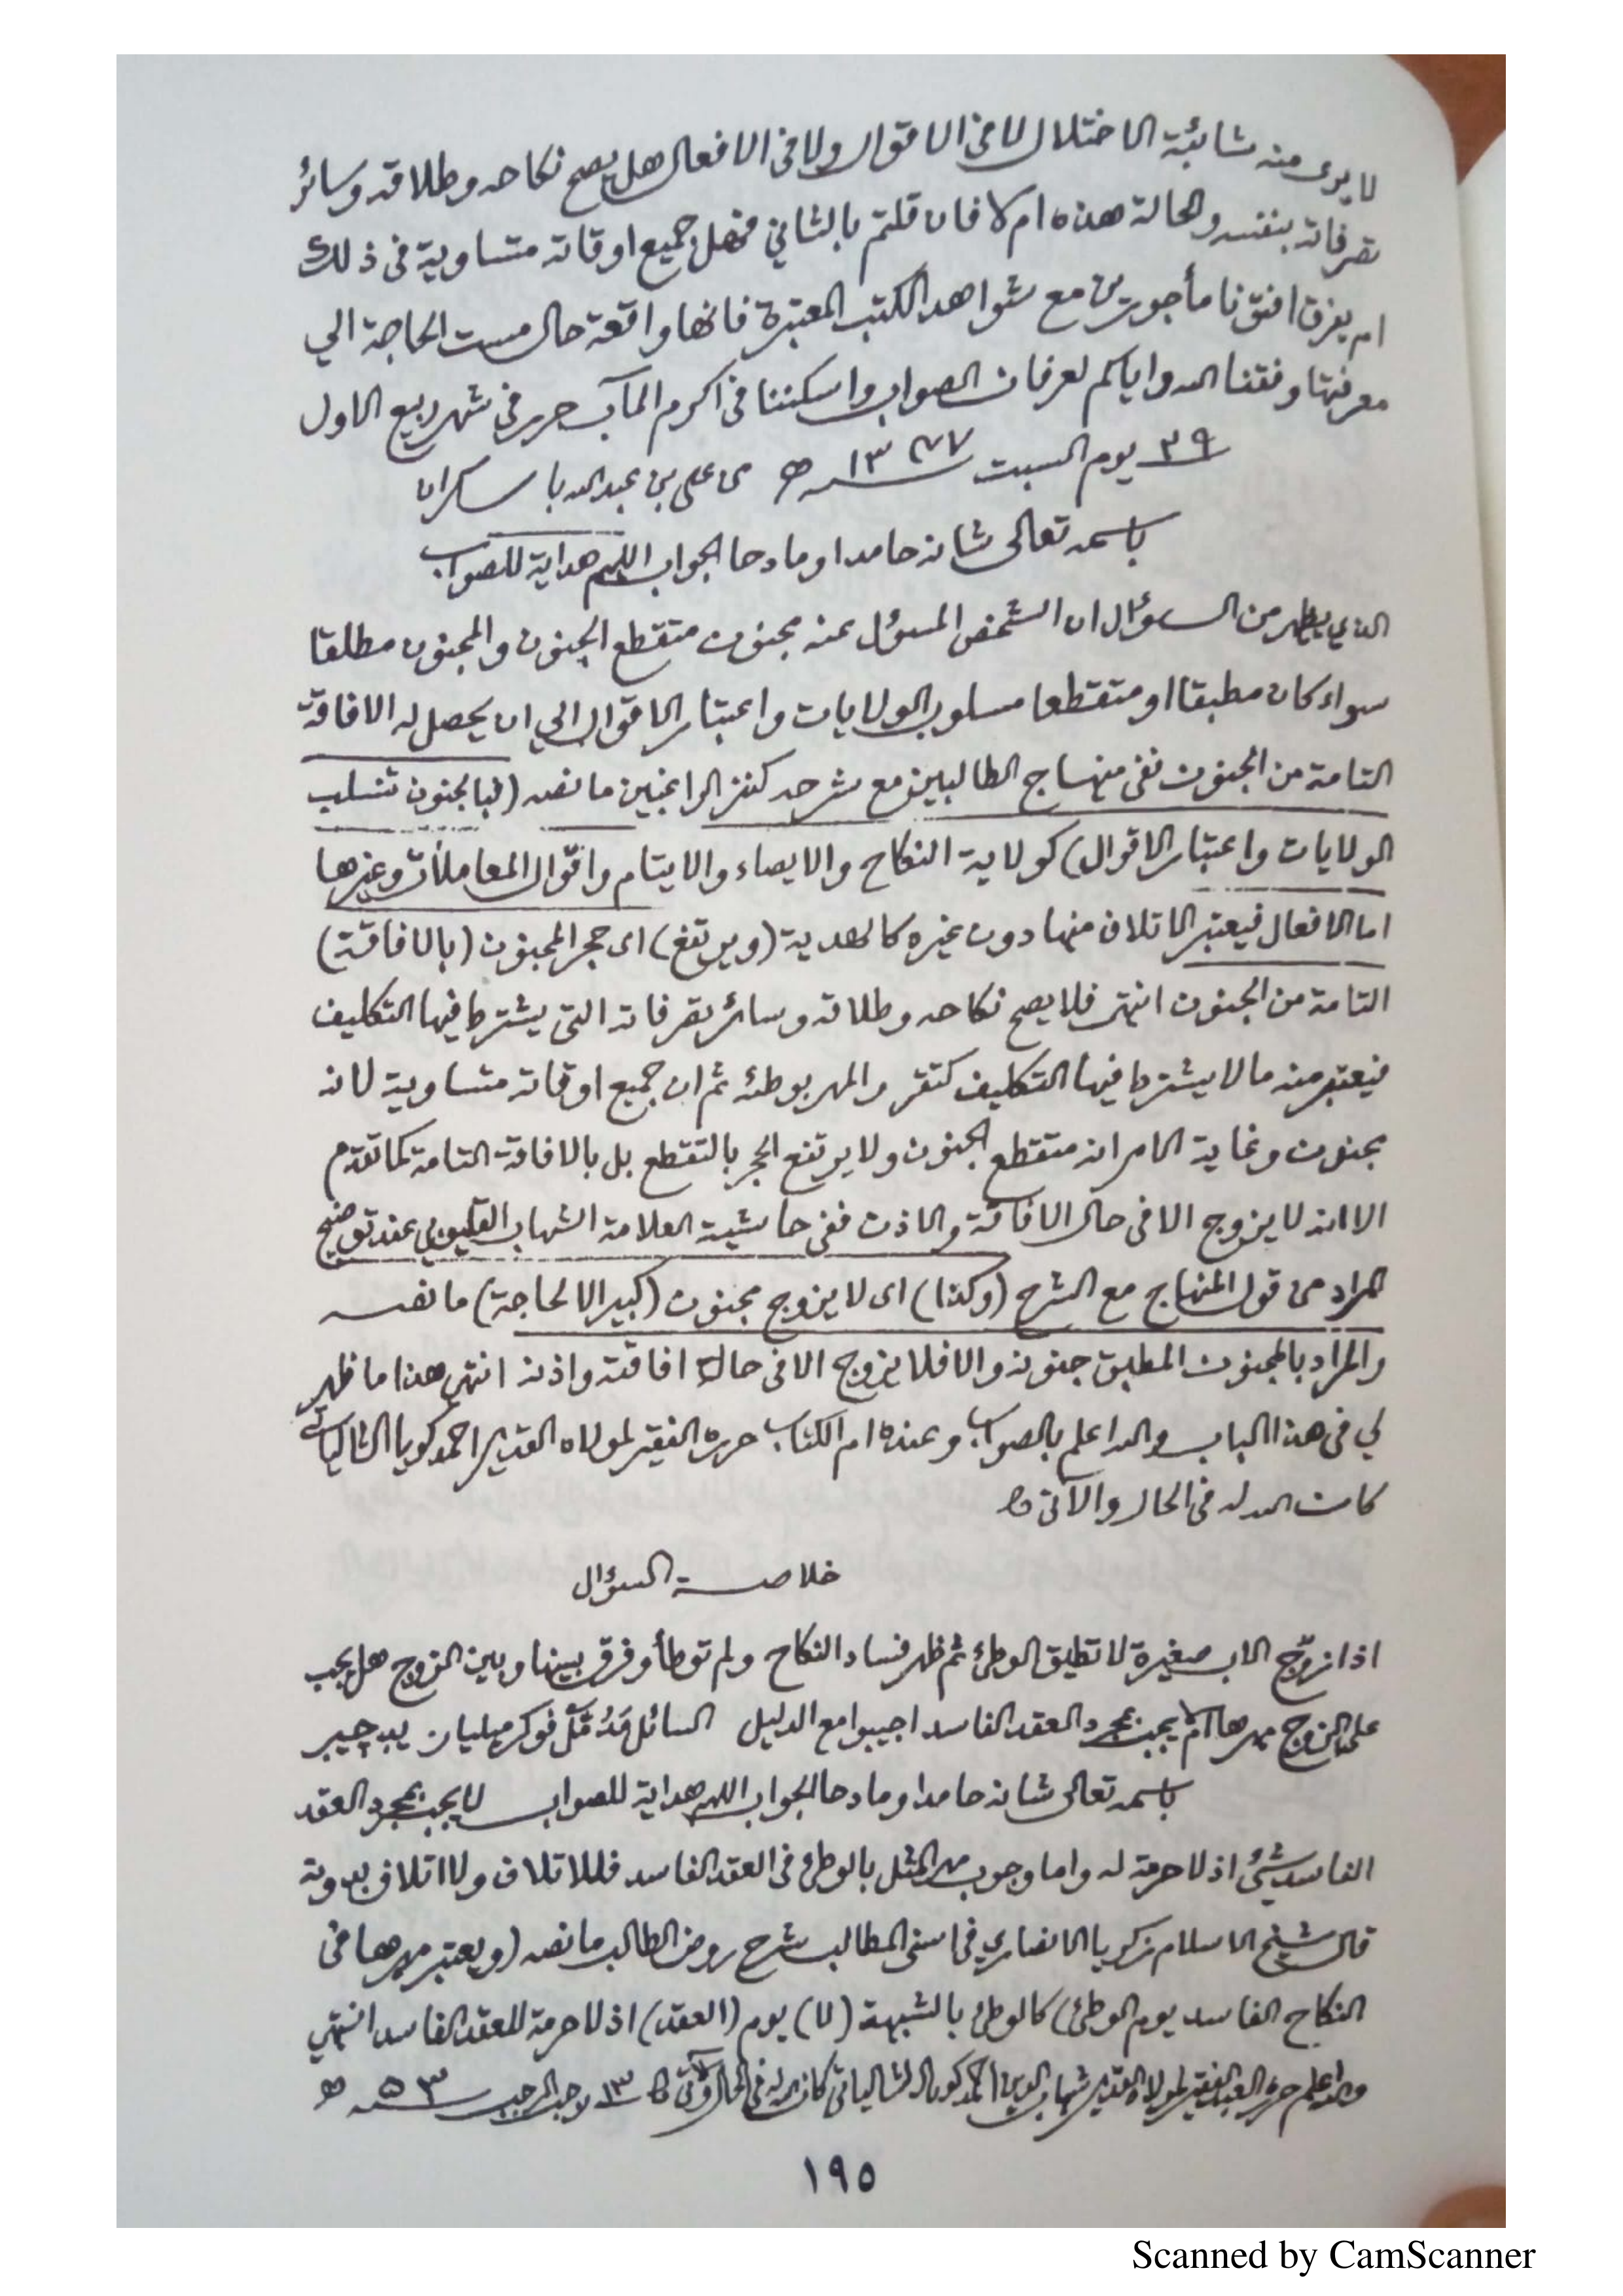 لا يرى منه شائبة الاختلال لا في الاقوال ولا في الافعال هل يصح نكاحه وطلاقه وسائر
تصرفاته بنفسه والحالة هذه ام لا فان قلتم بالثاني فهل جميع اوقاته متساوية في ذلك
ام يفرق افتونا مأجورين مع شواهد الكتب المعتبرة فانها واقعة حال مست الحاجة الي
معرفتها وفقنا الله واياكم لعرفان الصواب واسكننا في اكرم المآب حرر في شهر ربيع الاول
٢٩ يوم السبت ١٣٧٧ ھ من علي بن عبد الله با سكران
باسمه تعالى شانه حامدا ومادحا الجواب اللهم هداية للصواب
الذي يظهر من السؤال ان الشخص المسؤل عنه مجنون متقطع الجنون والمجنون مطلقا
سواء كان مطبقا او متقطعا مسلوب الولايات واعتبار الاقوال الي ان يحصل له الافاقة
التامة من الجنون ففي منهاج الطالبين مع شرحه كنز الراغبين ما نصه (فبالجنون تنسلب
الولايات واعتبار الاقوال) كولاية النكاح والايصاء والايتام واقوال المعاملات وغيرها
اما الافعال فيعتبر الاتلاف منها دون غيره كالهدية (ويرتفع) اى حجر المجنون (بالافاقة)
التامة من الجنون انتهى فلا يصح نكاحه وطلاقه وسائر تصرفاته التي يشترط فيها التكليف
فيعتبر منه ما لا يشترط فيها التكليف كتقرر المهر بوطئه ثم ان جميع اوقاته متساوية لانه
مجنون وغاية الامر انه متقطع الجنون ولا يرتفع الحجر بالتقطع بل بالافاقة التامة كما تقدم
الا انه لا يزوج الا في حال الافاقة والاذن ففي حاشية العلامة الشهاب القليوبي عند توضيح
المراد من قول المنهاج مع الشرح (وكذا) اى لا يزوج مجنون (كبير الا لحاجة) ما نصه
والمراد بالمجنون المطبق جنونه والا فلا يزوج الا في حالة افاقته واذنه انتهى هذا ما ظهر
لي في هذا الباب والله اعلم بالصواب وعنده ام الكتاب حرره الفقير لمولاه القدير احمد كويا الشالياتي
كان الله له في الحال والآتى
خلاصة السؤال
اذا زوّج الاب صغيرة لا تطيق الوطئ ثم ظهر فساد النكاح ولم توطأ وفرق بينها وبين الزوج هل يجب
على الزوج مهرها ام لا يجب بمجرد العقد الفاسد اجيبوا مع الدليل السائل
باسمه تعالى شانه حامدا ومادحا الجواب اللهم هداية للصواب لا يجب بمجرد العقد
الفاسد شئ اذ لا حرمة له واما وجوب مهر المثل بالوطئ في العقد الفاسد فللاتلاف ولا اتلاف بدونه
قال شيخ الاسلام زكريا الانصاري في اسنى المطالب شرح روض الطالب ما نصه (ويعتبر مهرها في
النكاح الفاسد يوم الوطئ) كالوطئ بالشبهة (لا) يوم (العقد) اذ لا حرمة للعقد الفاسد انتهى
والله اعلم حرره العبد الفقير لمولاه القدير شهاب الدين احمد كويا الشالياتي كان الله له في الحال والآتى ١٣ رجب الرجب ٥٣ ھ
١٩٥
Scanned by CamScanner